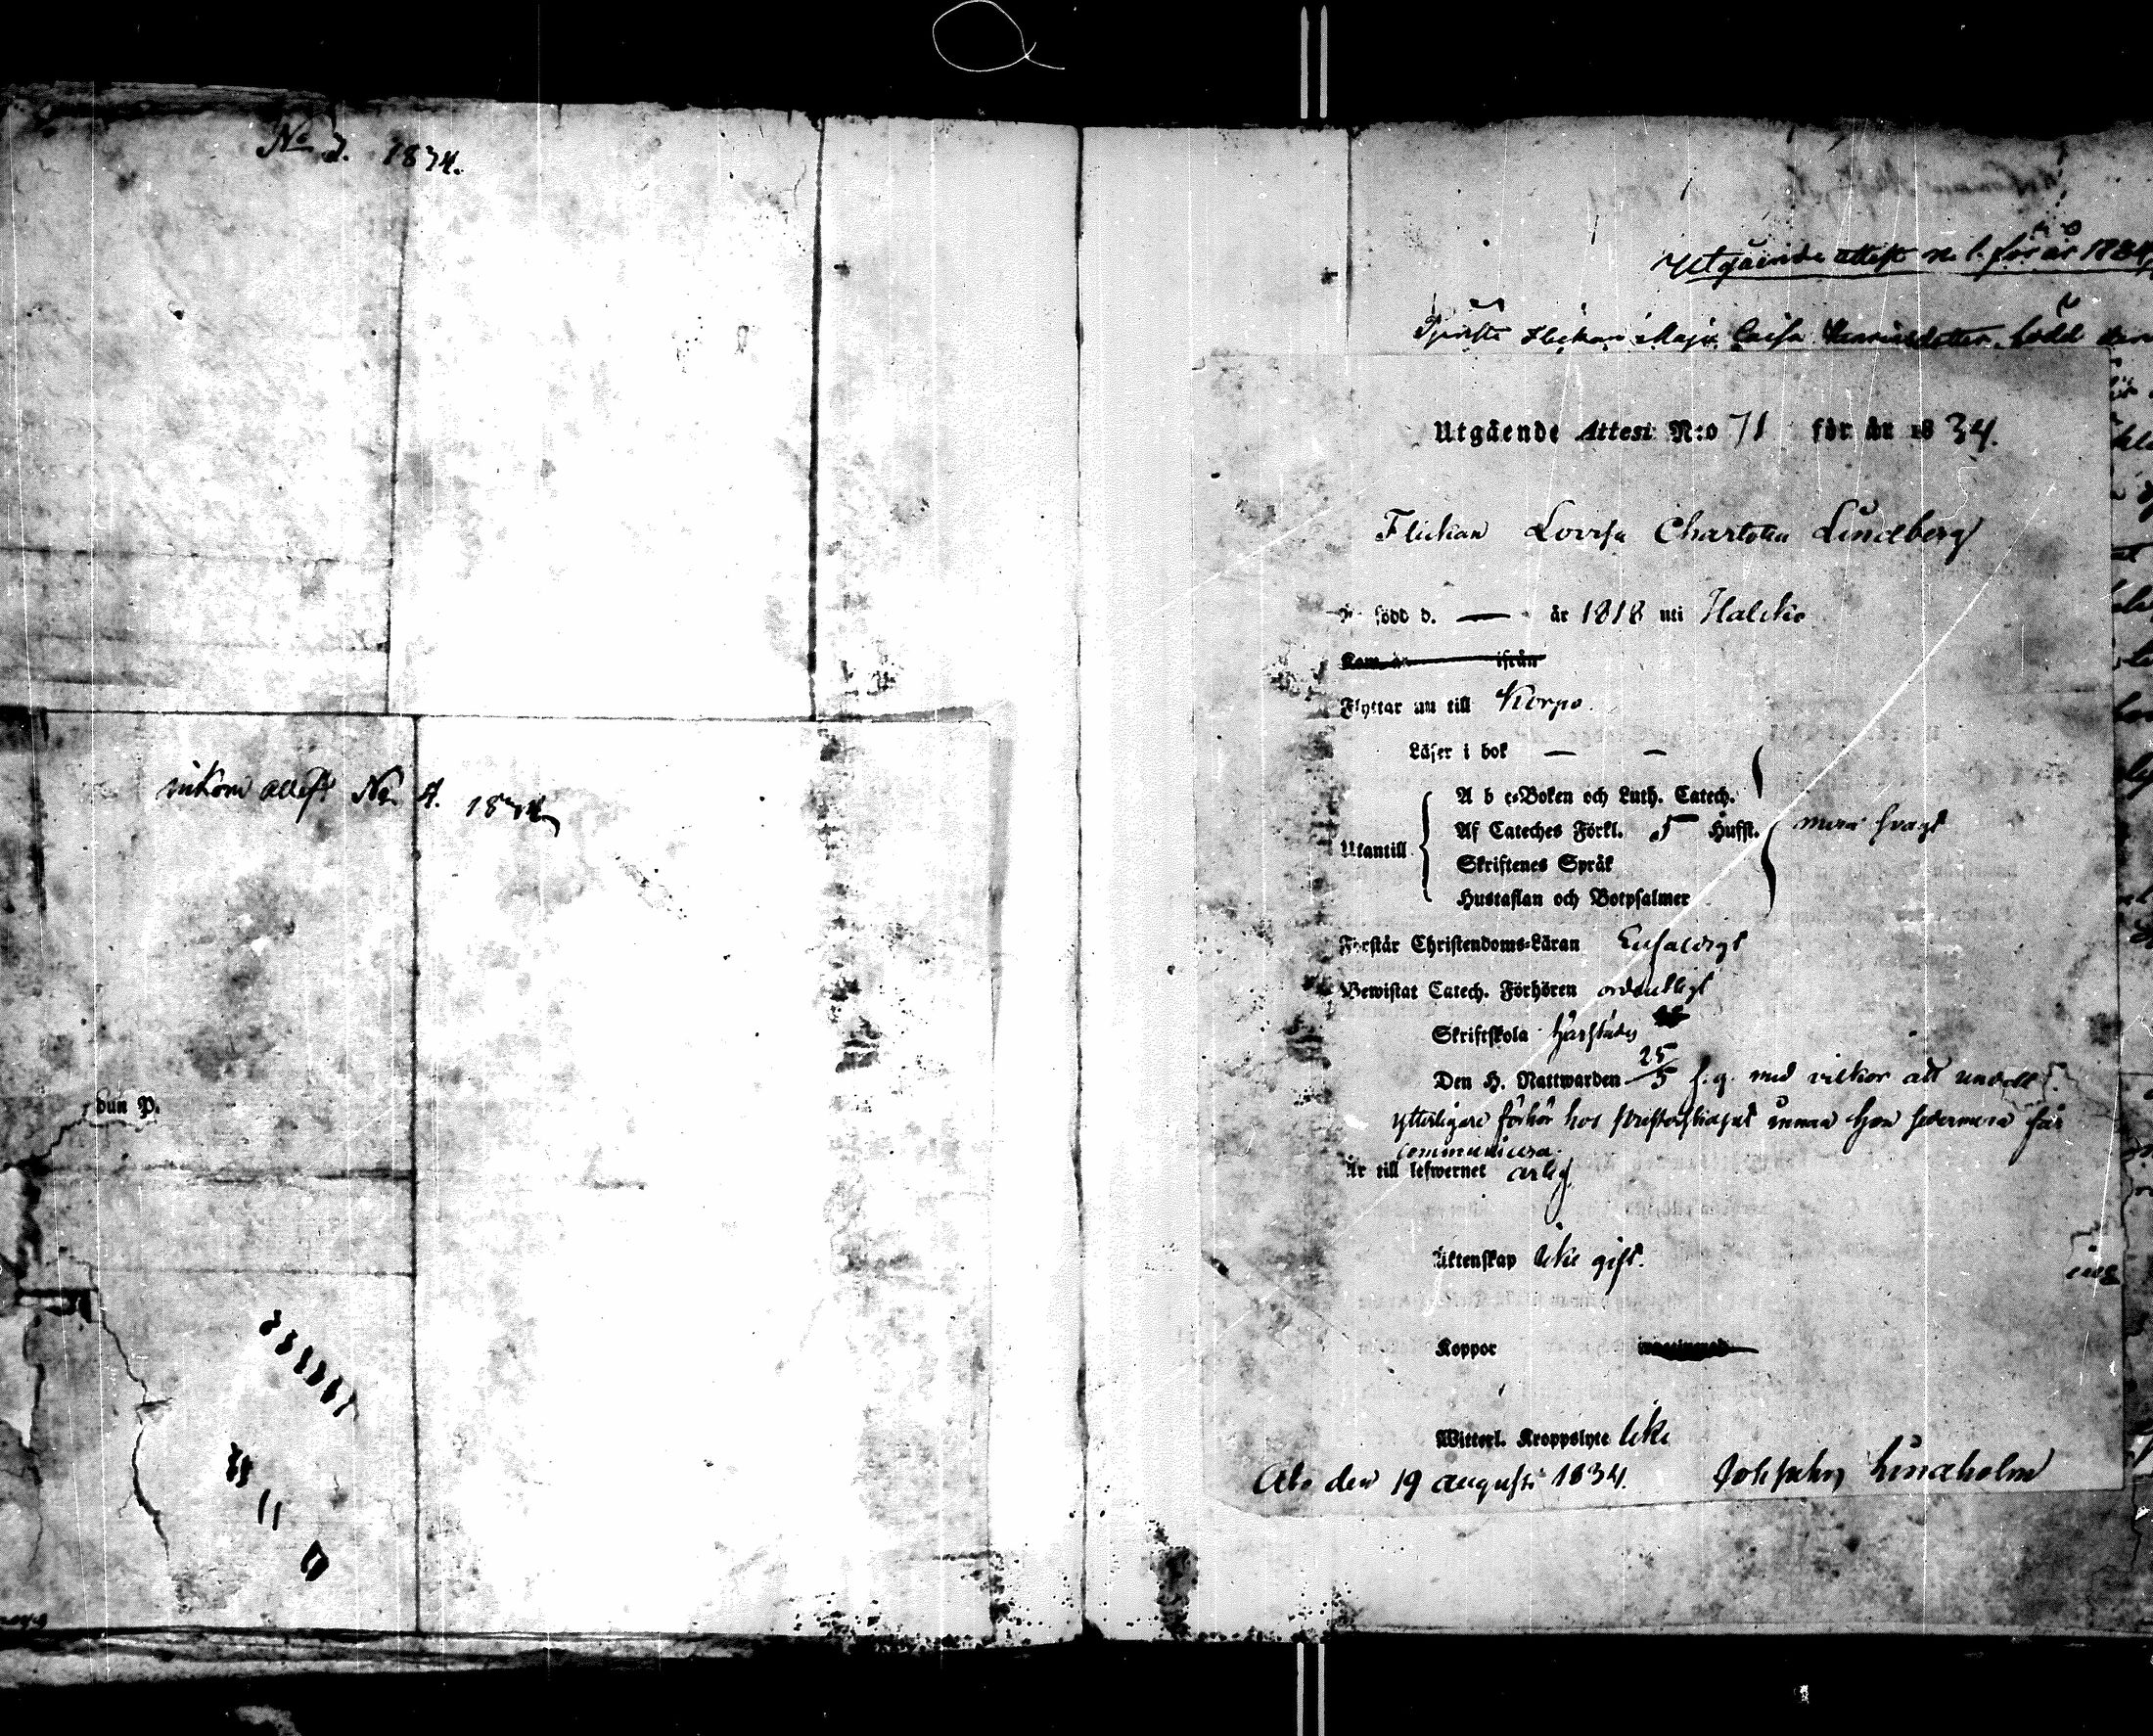 No 3. 1834.
inkom attest No 4. 1834
dun P.
Utgående attest No 1. för år 1834,
Flickan Maja Caisa Henricsdotter, född den
Utgående Attest N:o 71 för år 1834.
Flickan Lovisa Charlotta Lindberg
Är född d. — år 1818 uti Haliko
Kom år ifrån
Flyttar nu till Korpo.
Läser i bok — —
A b c-Boken och Luth. Catech.
Af Cateches Förkl. 5 Hufst. svagt
Utantill
Skriftenes Språk
Hustaflan och Botpsalmer
Förstår Christendoms-Läran Enfaldigt
Bewistat Catech. Förhören ordentligt
Skriftskola härstädes
Den H. Nattwarden 25/5 f.g. med vilkor att undergå
ytterligare förhör hos Presterskapet innan hon sedermera får
communicera.
Är till lefwernet ärlig
Äktenskap Icke gift.
Koppor
Witterl. Kroppslyte Icke
Åbo den 19 augusti 1834. Lindholm